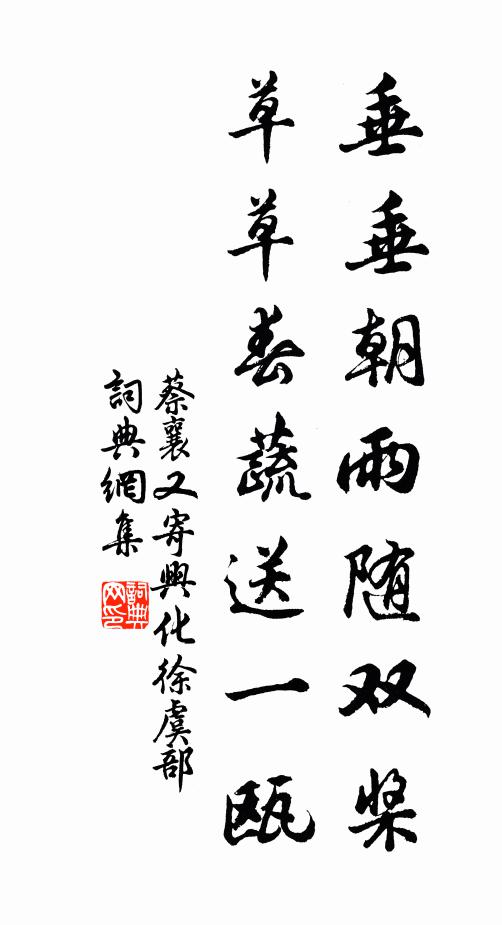 垂垂朝雨随双桨
草草春蔬送一瓯
蔡襄又寄興化徐虞部
詞典網集
詞典网印